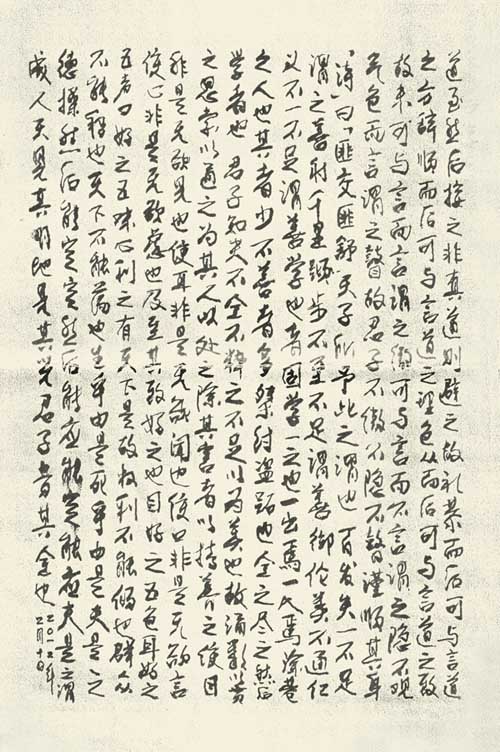 道至然后接之非其道则避之故礼恭而后可与言道
之方辞顺而后可与言道之理色从而后可与言道之致
故未可与言而言谓之傲可与言而不言谓之隐不观
气色而言谓之瞽故君子不傲不隐不瞽谨顺其身
「诗」曰「匪交匪舒天子所予此之谓也 百发失一不足
谓之善射千里蹞步不至不足谓善御伦类不通仁
义不一不足谓善学也者固学一之也一出焉一入焉涂巷
之人也其者少不善者多桀纣盗跖也全之尽之然后
学者也 君子知夫不全不粹之不足以为美也故诵数以贯
之思索以通之为其人以处之除其害者以持养之使目
非是无欲见也使耳非是无欲闻也使口非是无欲言
使心非是无欲虑也及至其致好之也目好之五色耳好之
五声口好之五味心利之有天下是故权利不能倾也群众
不能移也天下不能荡也生乎由是死乎由是夫是之
德操然后能定定然后能应能定能应夫是之谓
成人天见其明地见其光君子贵其全也
二〇一二年
二月十日